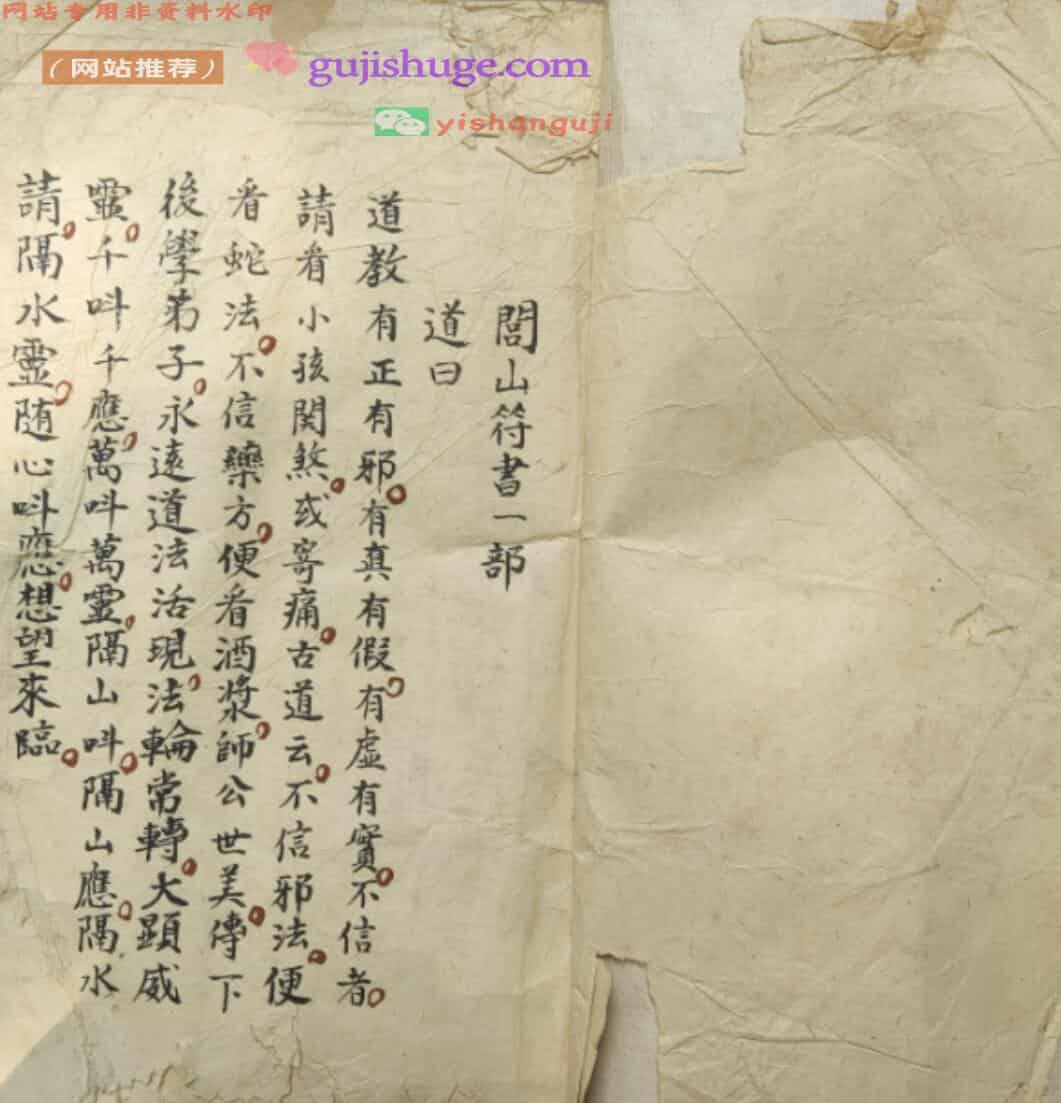 网站专用非资料水印
（网站推荐）
gujishuge.com
yishanguji
閭山符書一部
道曰
道教有正有邪有真有假有虛有實不信者
請看小孩関煞或寄痛古道云不信邪法便
看蛇法不信藥方便看酒漿師公世美傳下
後學弟子永遠道法活現法輪常轉大顕威
靈千呌千應萬呌萬靈隔山呌隔山應隔水
請隔水靈随心呌應想望來臨